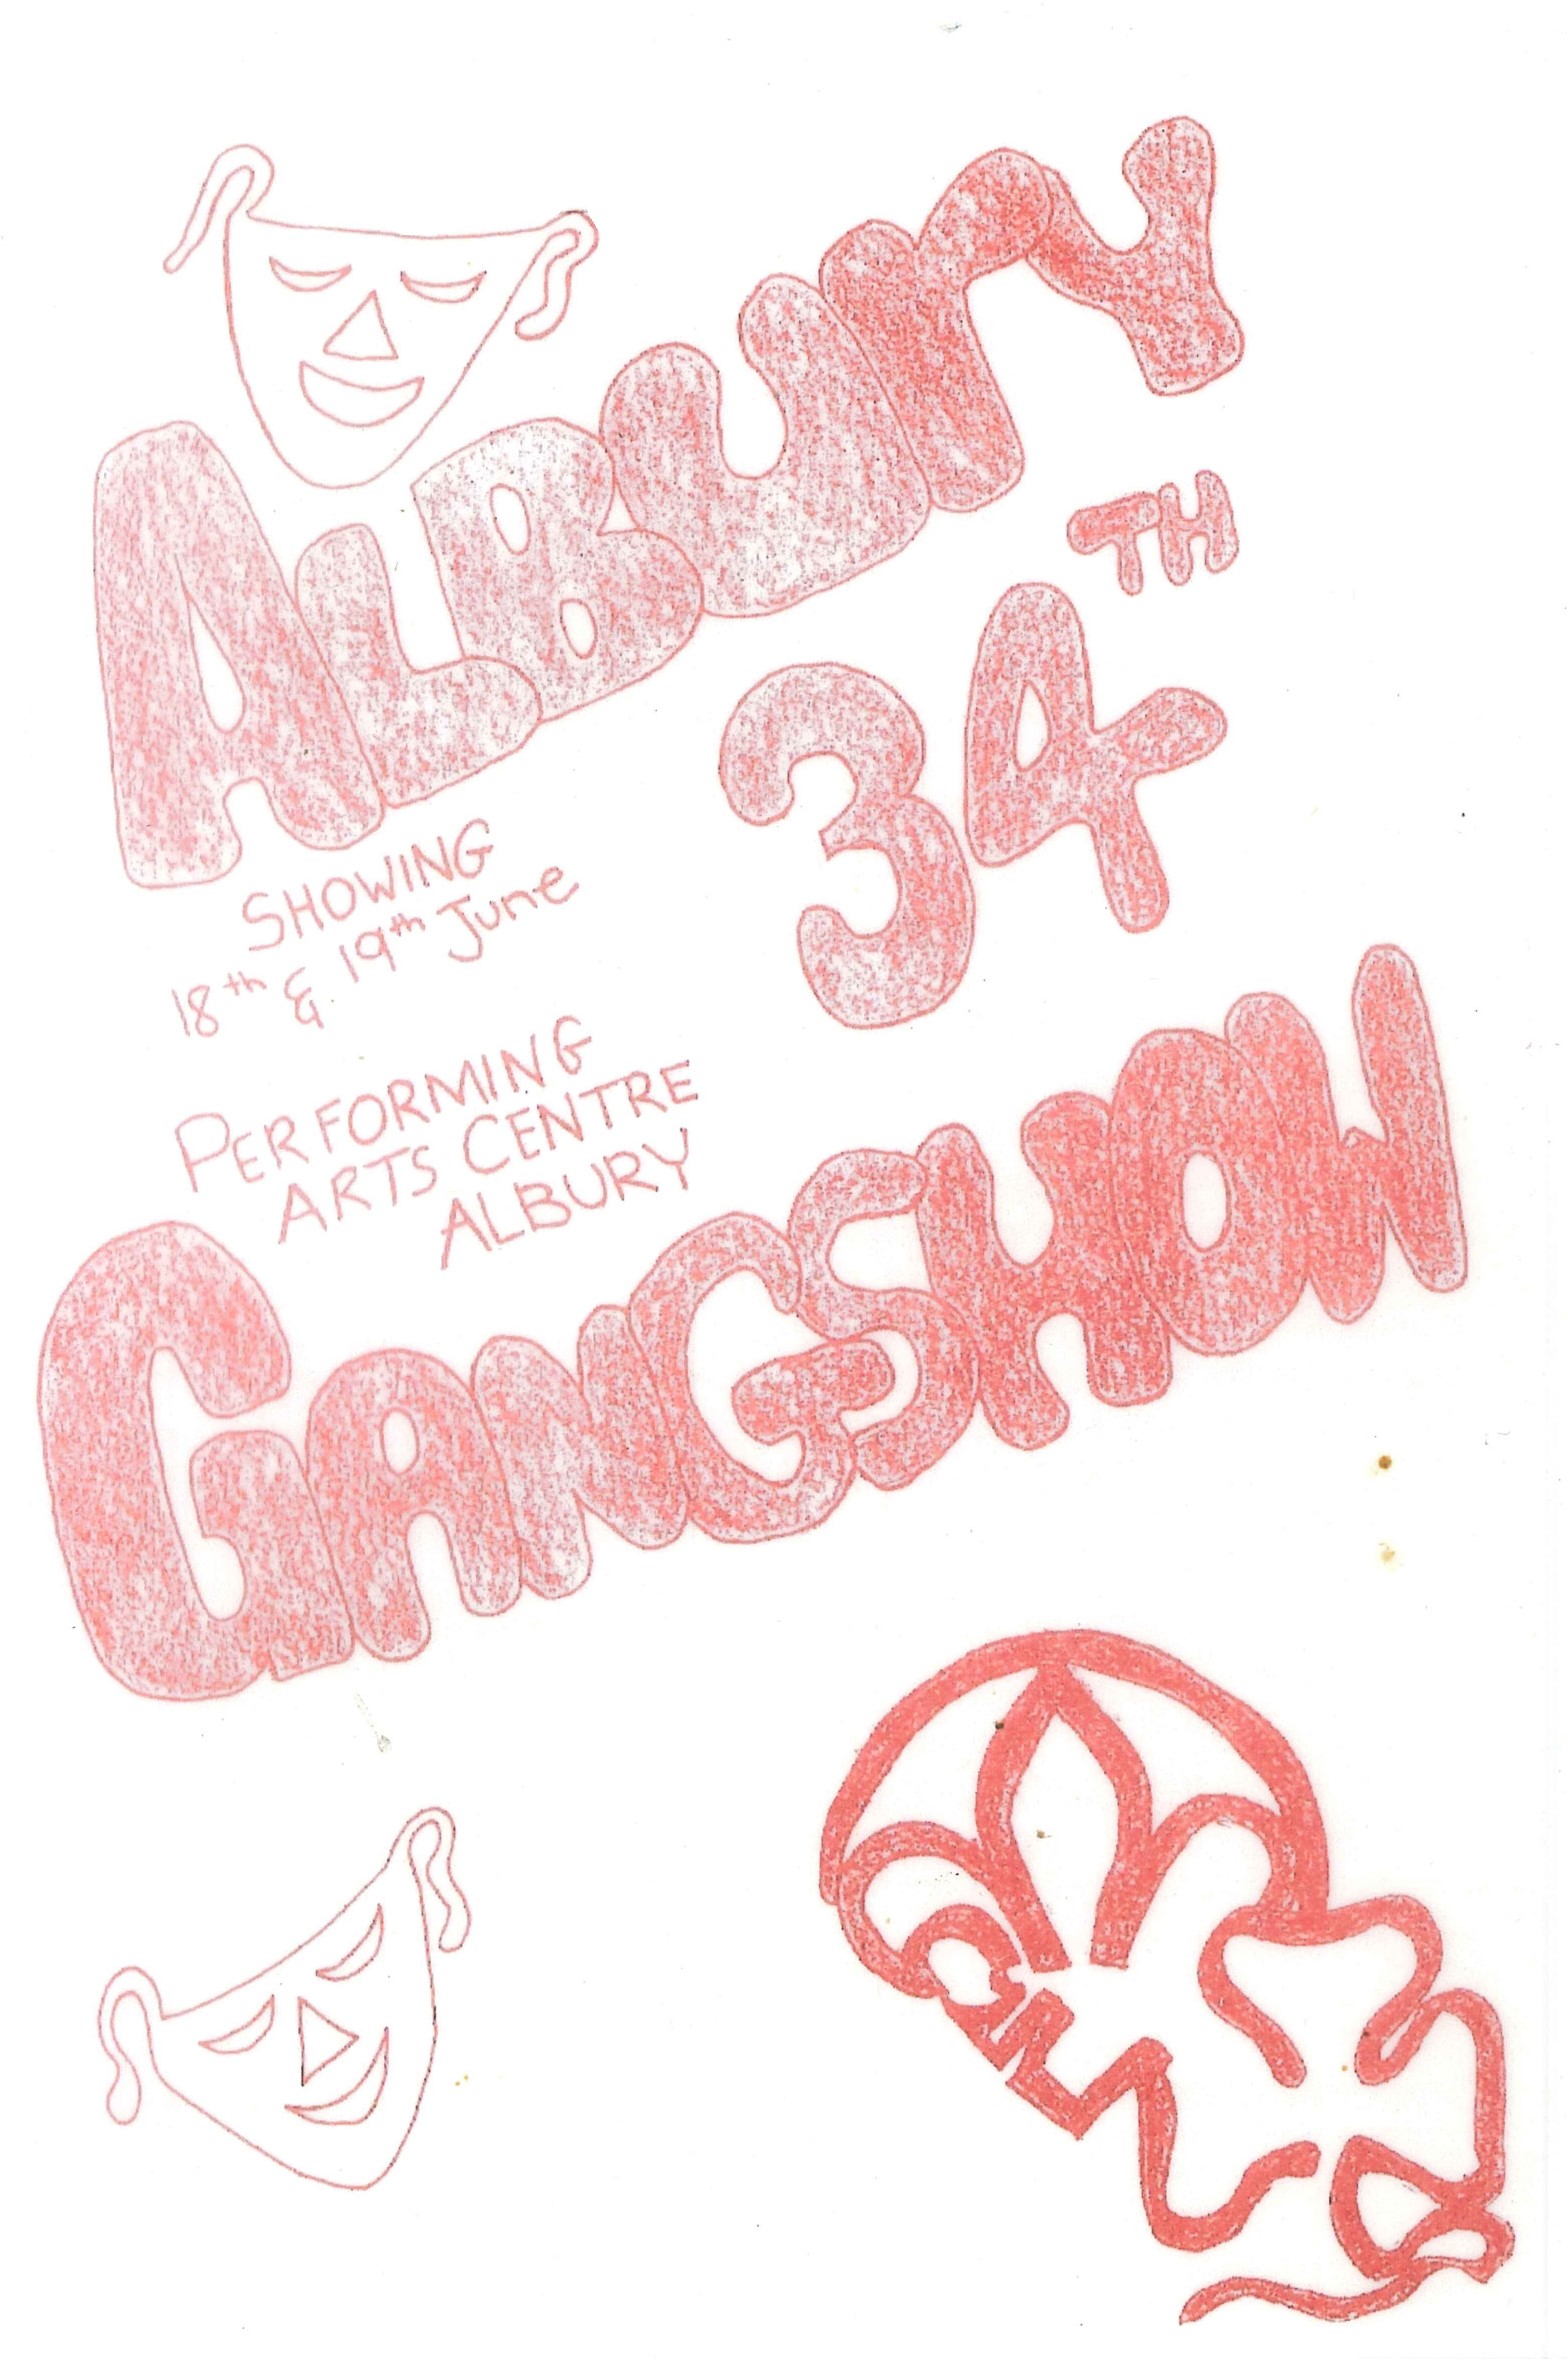 ALBURY
34TH
SHOWING
18th & 19th June
PERFORMING
ARTS CENTRE
ALBURY
GANGSHOW